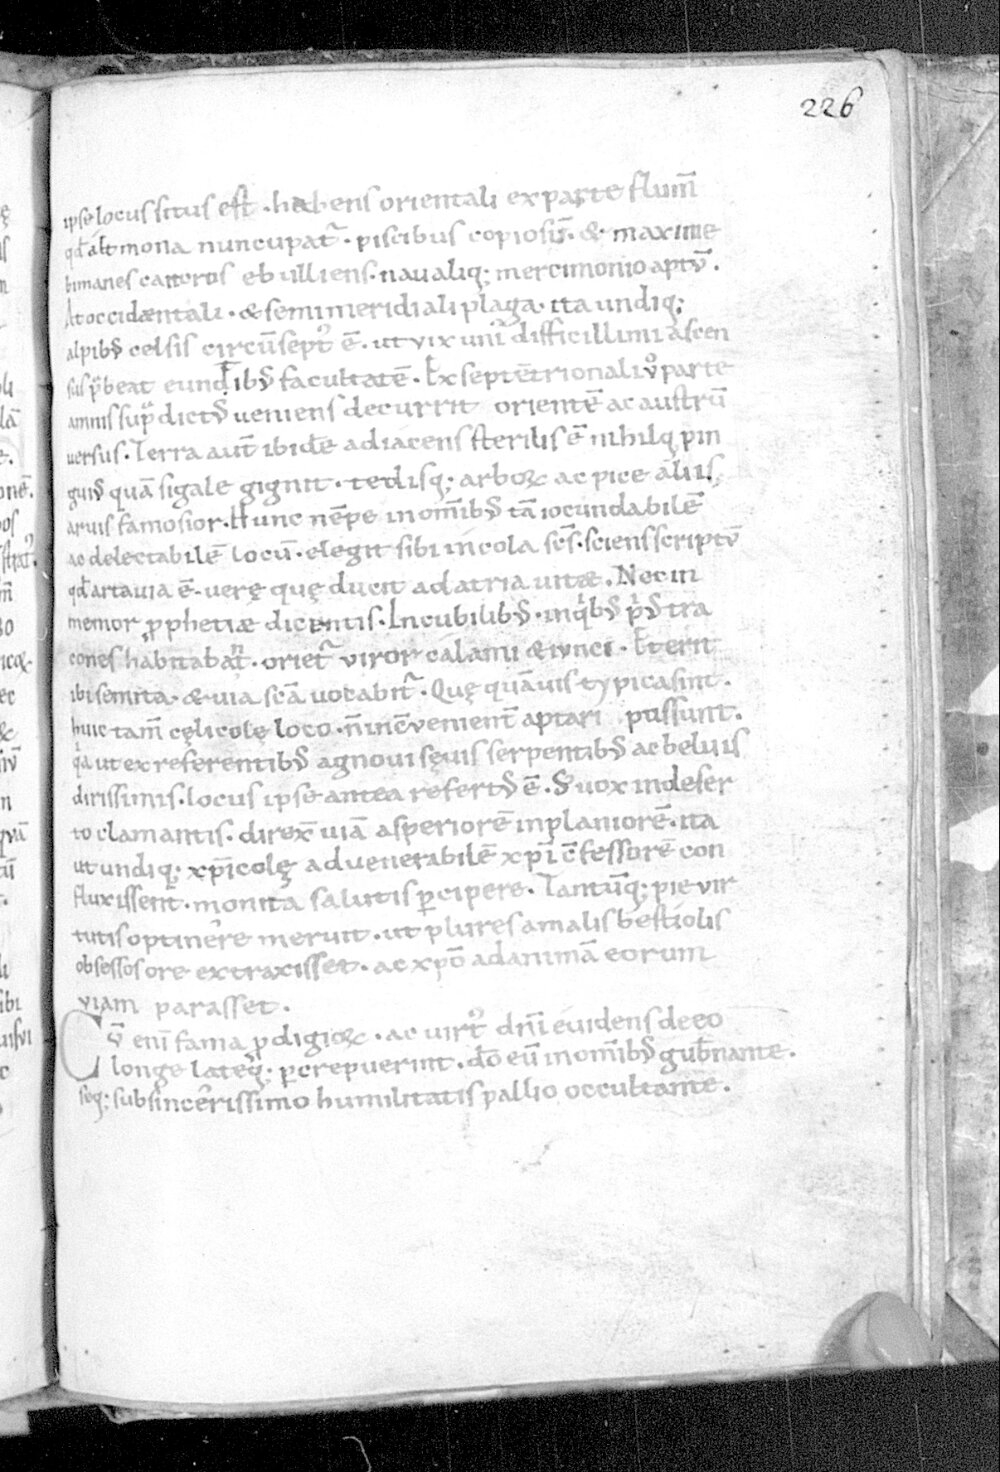 226
ipse locus situs est . habens orientali ex parte flum̄
qđ altmona nuncupat᷑ . piscibus copiosū . & maxime
bimanes cancros ebulliens . navaliq; mercimonio aptū .
At occidæntali . & semimeridiali plaga . ita undiq;
alpib; celsis circūsept᷒ ē . ut vix uni difficillimi ascen
sus p̄beat eundib; facultatē . Ex septēntrionali v͛ parte
amnis sup̄dict᷒ veniens decurrit orientē ac austrū
versus . Terra aut̄ ibidē adiacens sterilis ē nihilq; pin
guius quā sigale gignit . tedisq; arboꝝ ac pice aliis
arvis famosior . Hunc nēpe in om̄ib; tā iocundabilē
ac delectabilē locū . elegit sibi incola scs̄ . sciens scriptū
qđ arta via ē . verę quę ducit ad atria vitæ . Nec in
memor ꝓphetiæ dicentis . In cubilib; . in qͥb; pͥ᷒ dra
cones habitabant̄ . oriet᷑ viror calami & iunci . Et erit
ibi semita . & via scā vocabit᷑ . Quę quāvis typica sint .
huic tam̄ cęlicolę loco . n̄ incōvenient̄ aptari possunt .
qͥa ut ex referentib; agnovi sęvis serpentib; ac beluis
dirissimis . locus ipse antea refert᷒ ē . S; vox in deser
to clamantis . direx̄ viā asperiorē in planiorē . ita
ut undiq; xp̄icolę ad venerabilē xp̄i cōfessorē con
fluxissent . monita salutis ꝑcipere . Tantūq; pie vir
tutis optinēre meruit . ut plures a malis bestiolis
obsessos ore extraxisset . ac xp̄o ad animā eorum
viam parasset .
Cū eni fama ꝓdigioꝝ . ac virt᷒ dn̄i evidens de eo
longe lateq; ꝑcrepuerint . dō eū in om̄ib; gub̄nante .
seq; sub sincerissimo humilitatis pallio occultante .